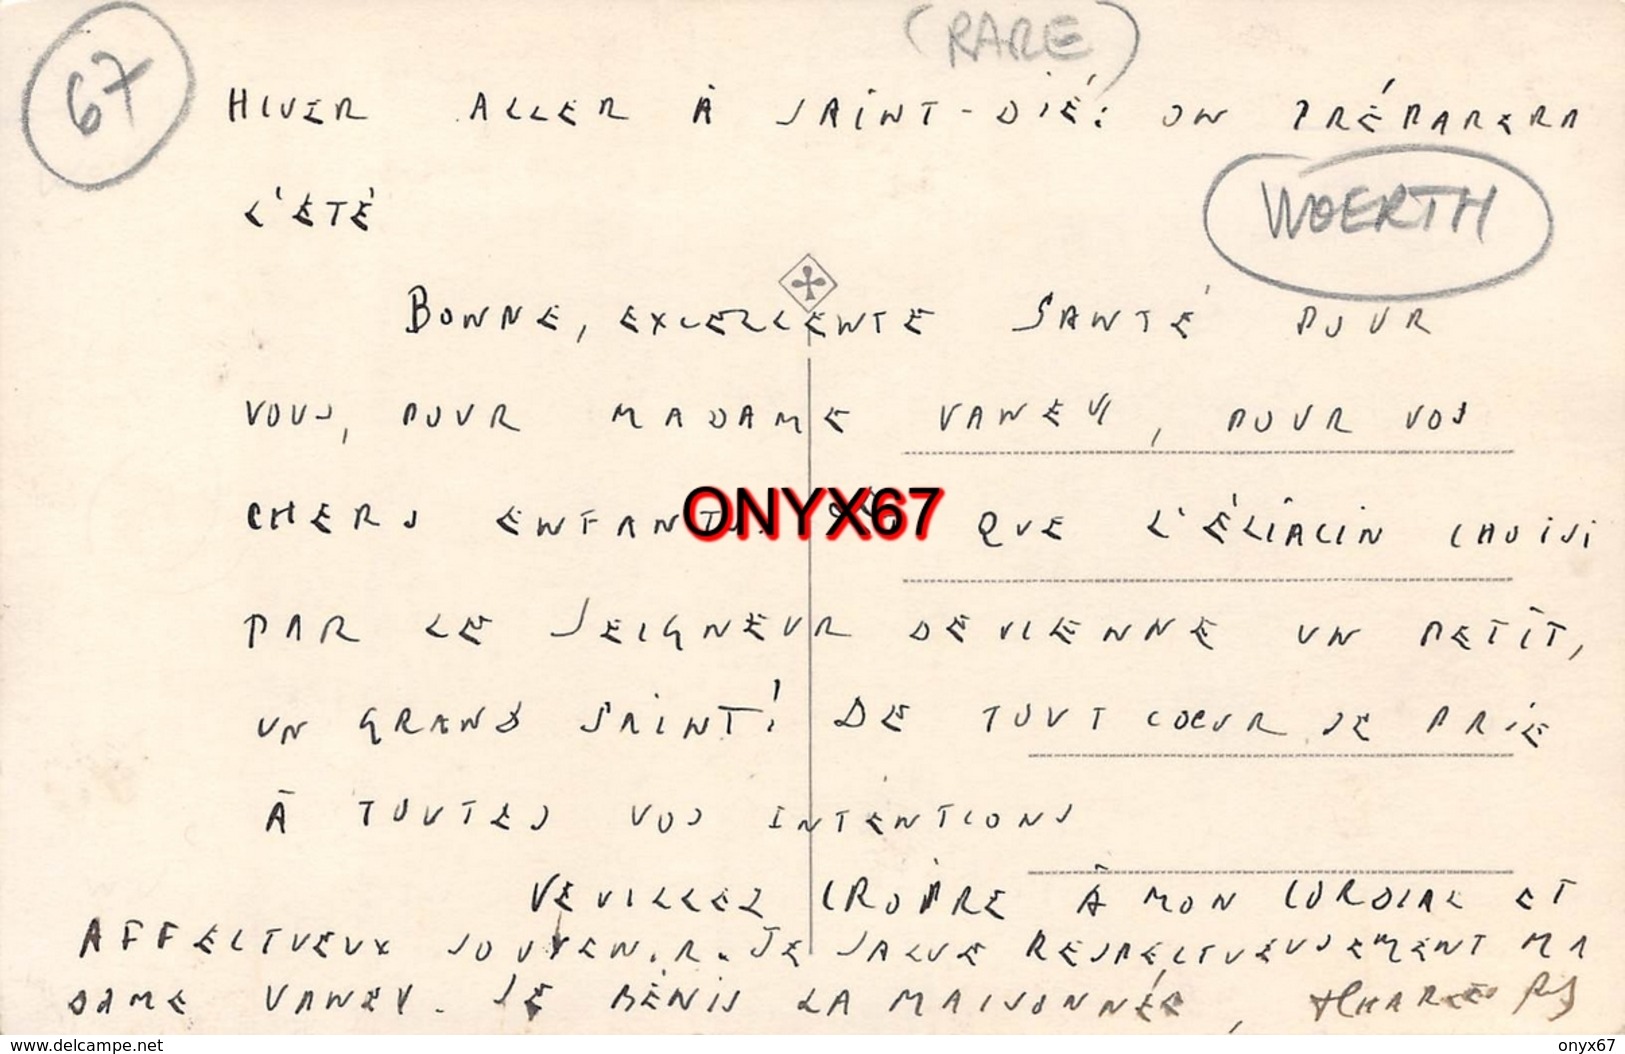 67
(RARE)
HIVER ALLER À SAINT-DIÉ: ON PRÉPARERA
L'ÉTÉ
WOERTH
BONNE, EXCELLENTE SANTÉ POUR
VOUS, POUR MADAME VANEY, POUR VOS
CHERS ENFANTS. QUE L'ÉLIACIN CHOISI
ONYX67
PAR LE SEIGNEUR DEVIENNE UN PETIT,
UN GRAND SAINT! DE TOUT COEUR JE PRIE
À TOUTES VOS INTENTIONS
VEUILLEZ CROIRE À MON CORDIAL ET
AFFECTUEUX SOUVENIR. JE SALUE RESPECTUEUSEMENT MA
DAME VANEY. JE BÉNIS LA MAISONNÉE,
www.delcampe.net
onyx67